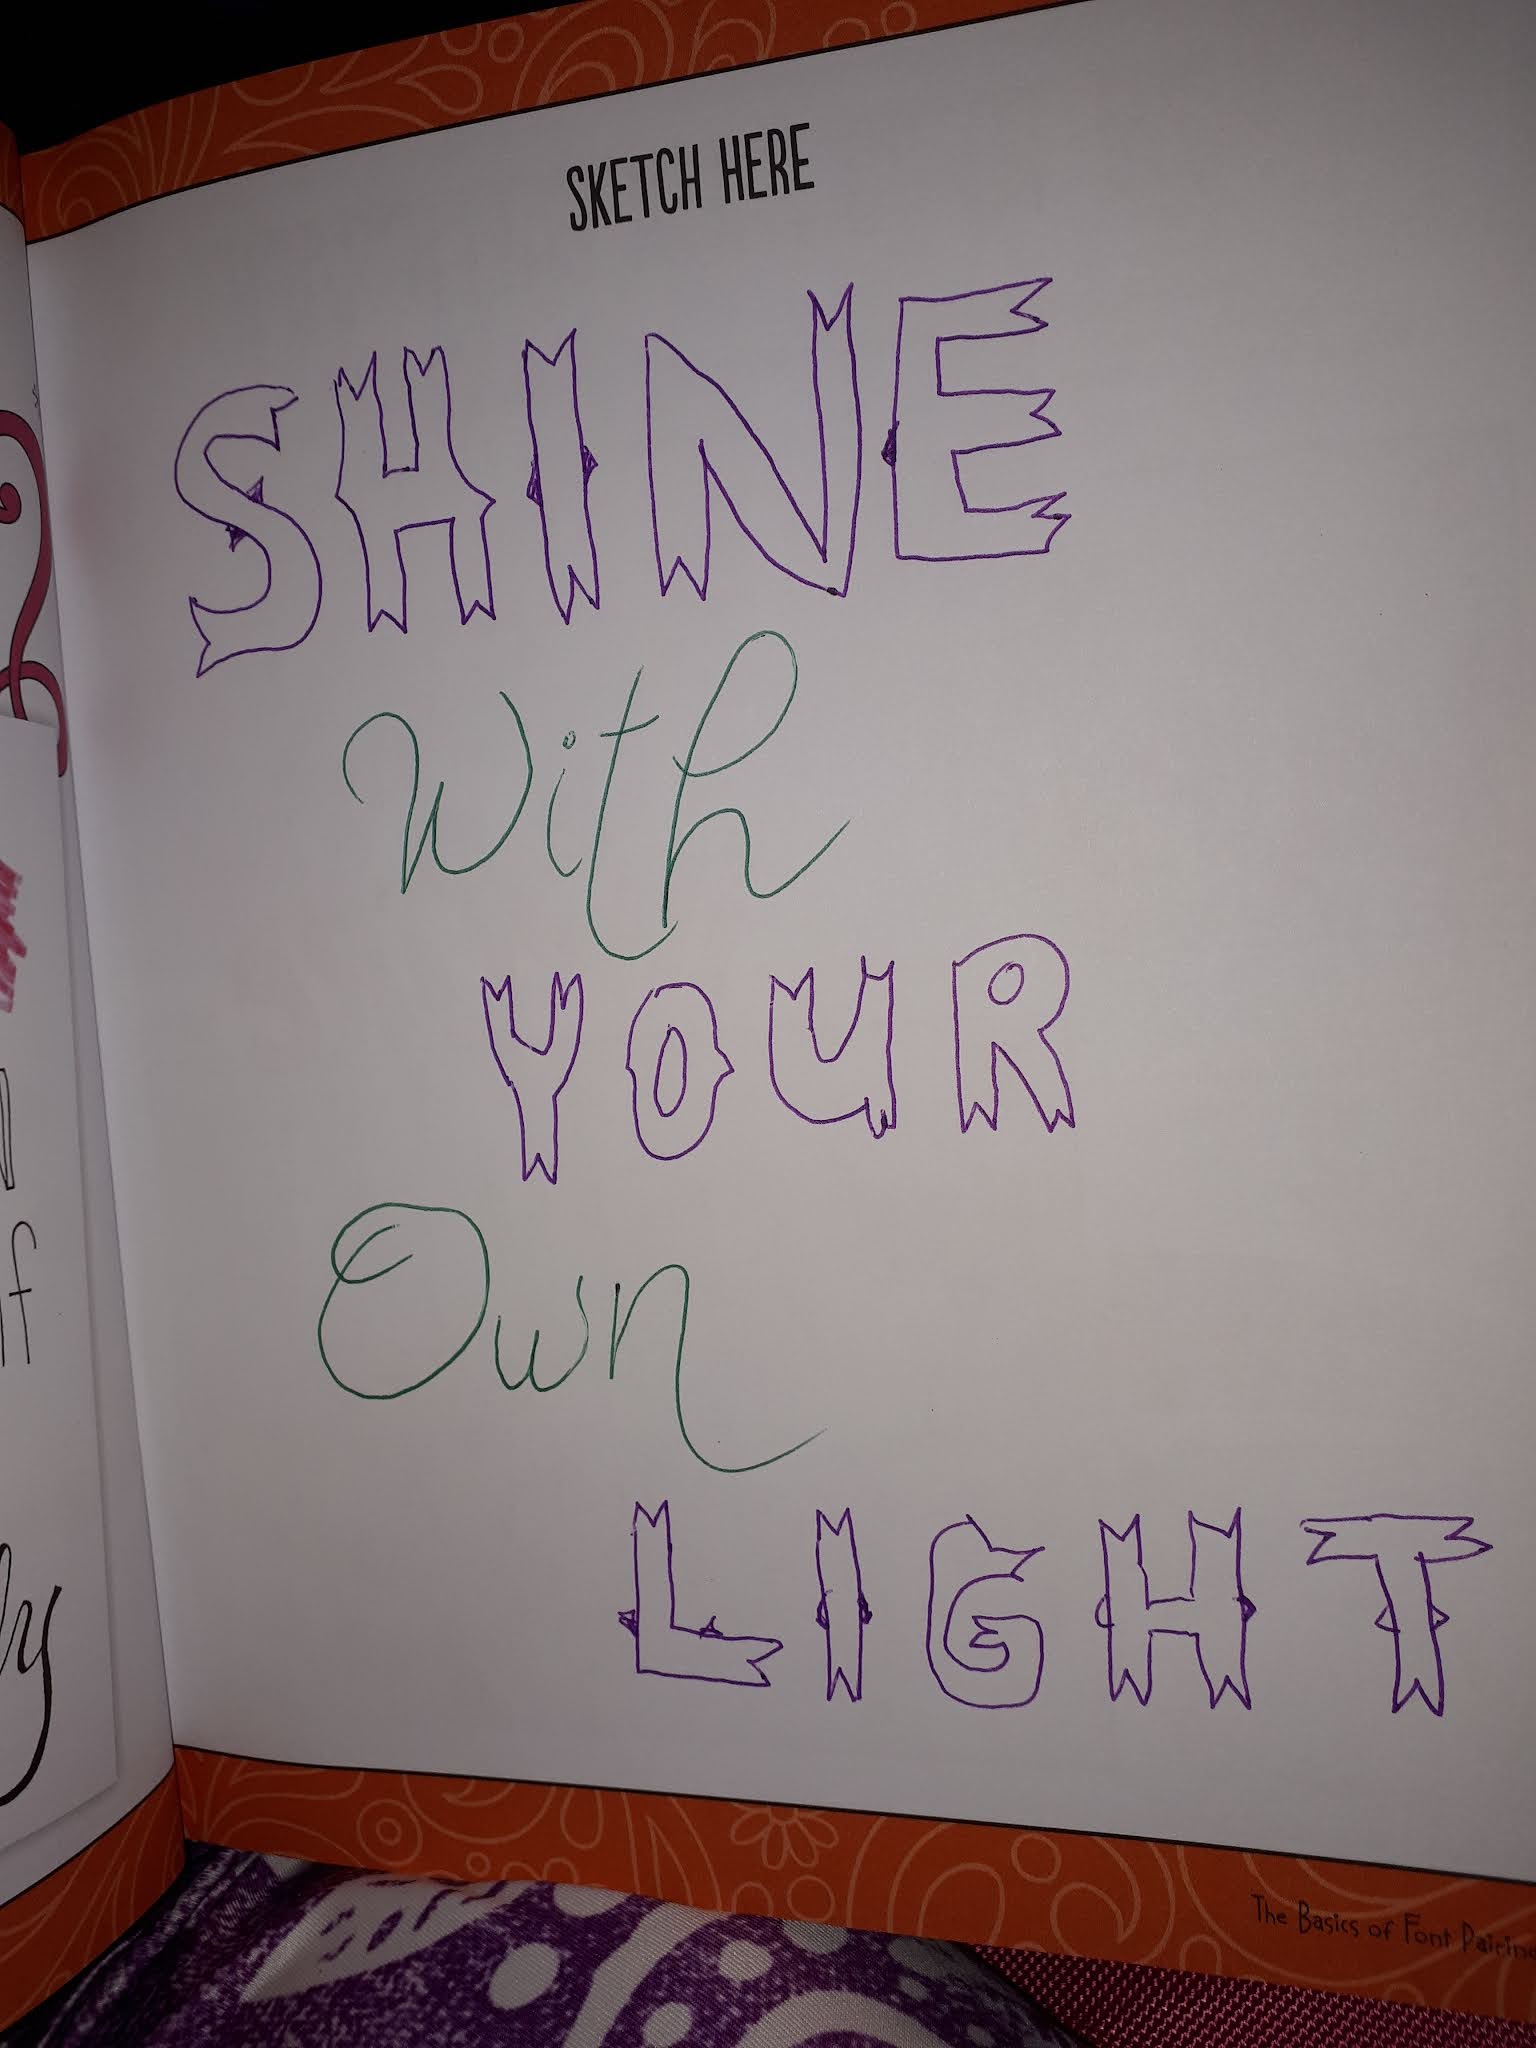 SKETCH HERE
SHINE
With
YOUR
Own
LIGHT
The Basics of Font Pairing